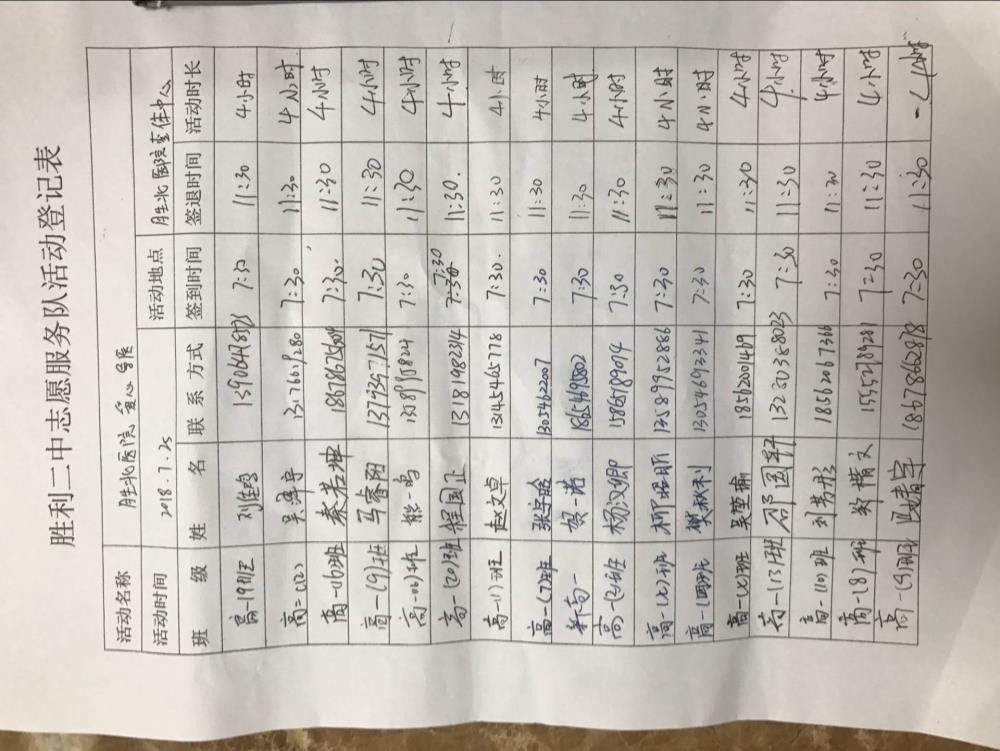 胜利二中志愿服务队活动登记表
活动名称 胜北医院 爱心 导医
活动时间 2018.7.25 活动地点 胜北医院查体中心
班级 姓名 联系方式 签到时间 签退时间 活动时长
高一19班 7:30 11:30 4小时
高二(12) 7:30 11:30 4小时
高一(16)班 秦若辉 7:30 11:30 4小时
高一(9)班 马睿阳 13793971571 7:30 11:30 4小时
熊一鸣 7:30 11:30 4小时
高一(20)班 程国正 13181982314 7:30 11:30. 4小时
高一(1)班 赵文卓 13145465778 7:30. 11:30 4小时
高一(7)班 张宇晗 13054622007 7:30 11:30 4小时
新高一 贺一诺 18654695802 7:30 11:30 4小时
高一(2)班 杨汶卿 15865189074 7:30 11:30 4小时
高一(2)班 柳昭昕 13589952886 7:30 11:30 4小时
樊秋利 13054693341 7:30 11:30 4小时
高一(2)班 吴堇瑜 18562001469 7:30 11:30 4小时
高一(13)班 邵国轩 13280388023 7:30 11:30 4小时
高一(10)班 18562067366 7:30 11:30 4小时
高一(8)班 郑楷文 15552789281 7:30 11:30 4小时
高一(9)班 18678686288 7:30 11:30 4小时